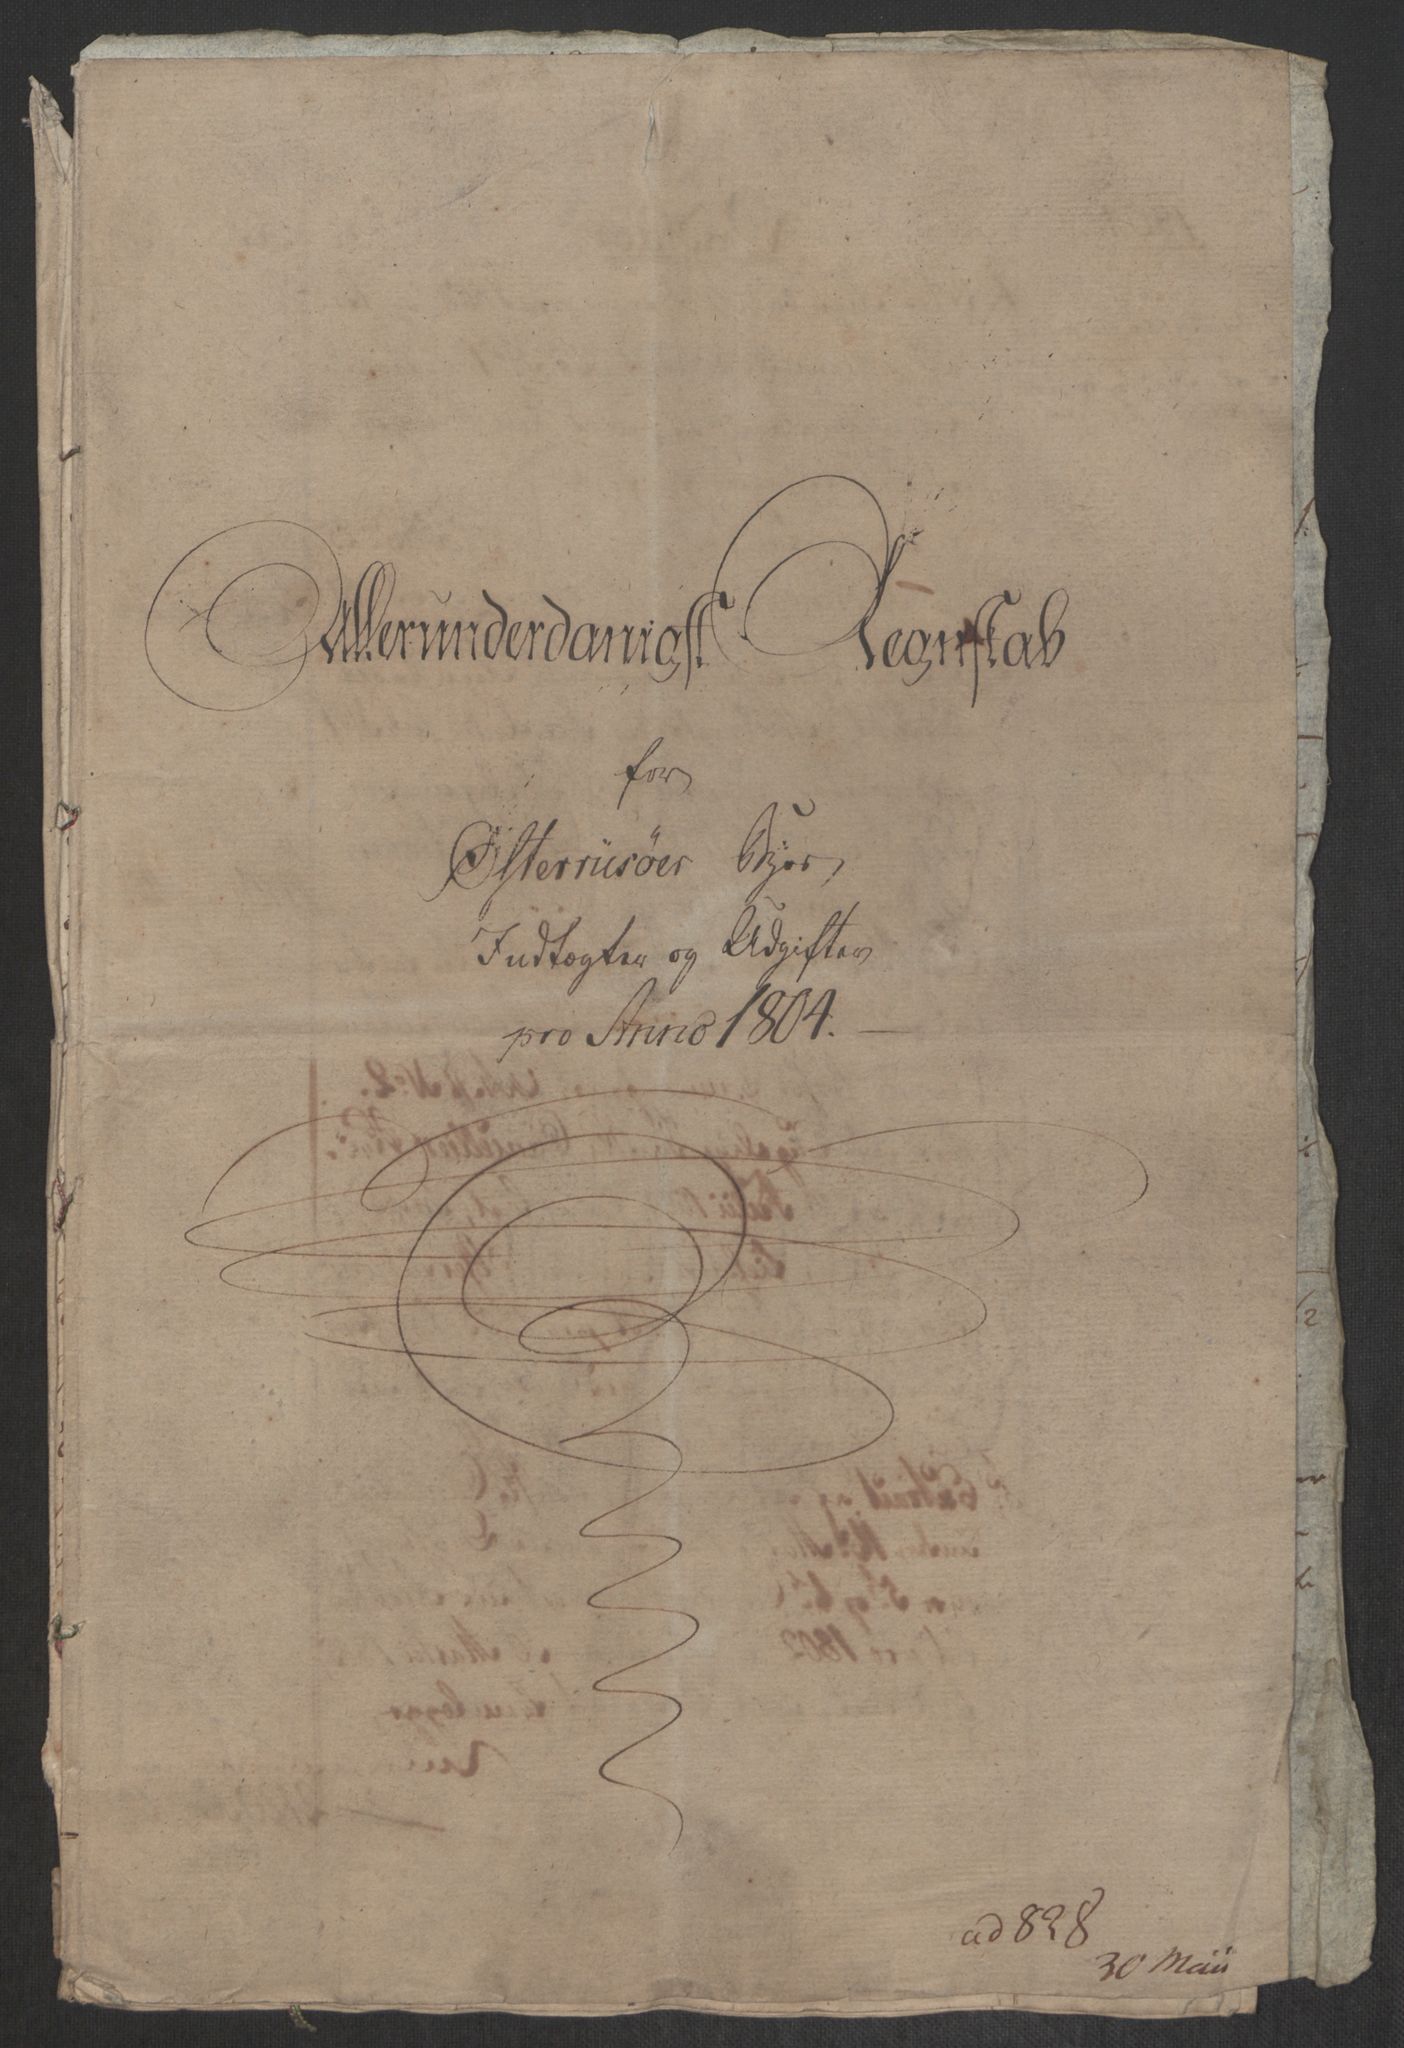 Allerunderdanigst Regnskab
for
Østerriisöer Byes
Indtægter og Udgifter
pro Anno 1804.
ad 828
30 Maii